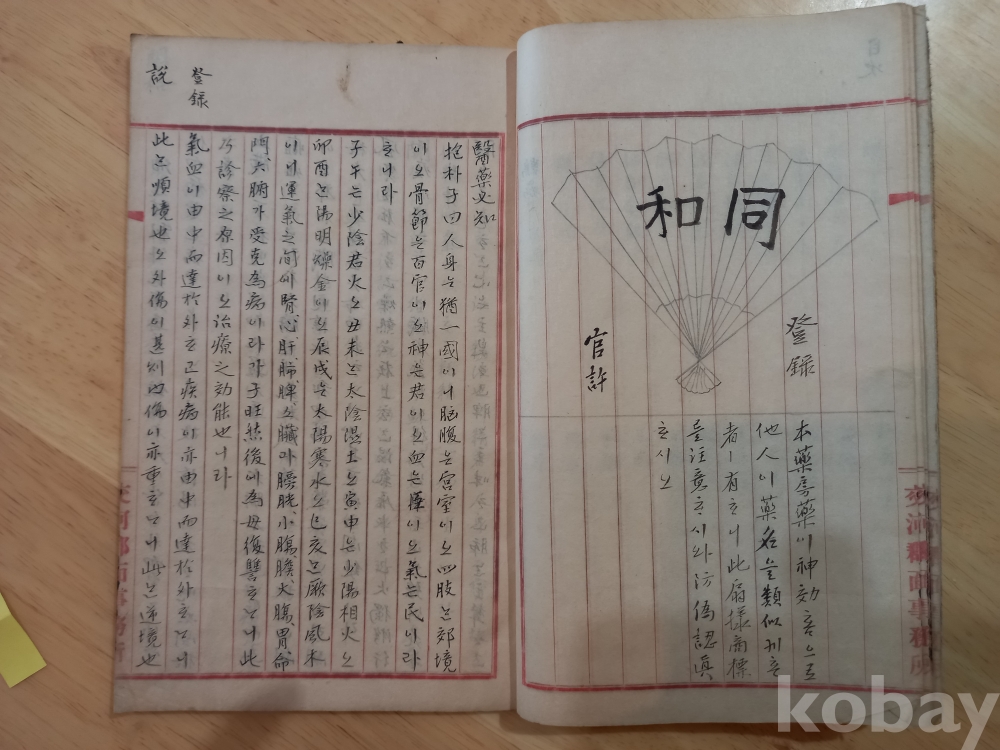 同和
登錄
官許
本藥藥이神効홈으로
他人이藥名을類似케ᄒᆞᆫ
者ㅣ有ᄒᆞ니此扇樣商標
를注意ᄒᆞ시와防僞認眞
ᄒᆞ시오
面事務所
登錄
說
醫藥必知
抱朴子曰人身는猶一國이니胸腹는宮室이오四肢는郊境
이오骨節는百官이오神은君이오血는이오氣는民이라
ᄒᆞ니라
子午는少陰君火오丑未는太陰濕土오寅申는少陽相火오
卯酉는陽明燥金이오辰戌는太陽寒水오巳亥는厥陰風木
이니運氣之間에腎心肝肺脾五臟과膀胱小腸膽大腸胃命
門六腑가受克爲病이라가子旺然後에爲母復讐ᄒᆞᄂᆞ니此
乃診察之原因이오治療之効能也니라
氣血이由中而達於外ᄒᆞ고疾病이亦由中而達於外ᄒᆞᄂᆞ니
此는順境也오外傷이甚則內傷이亦重ᄒᆞᄂᆞ니此는逆境也
交河郡
kobay